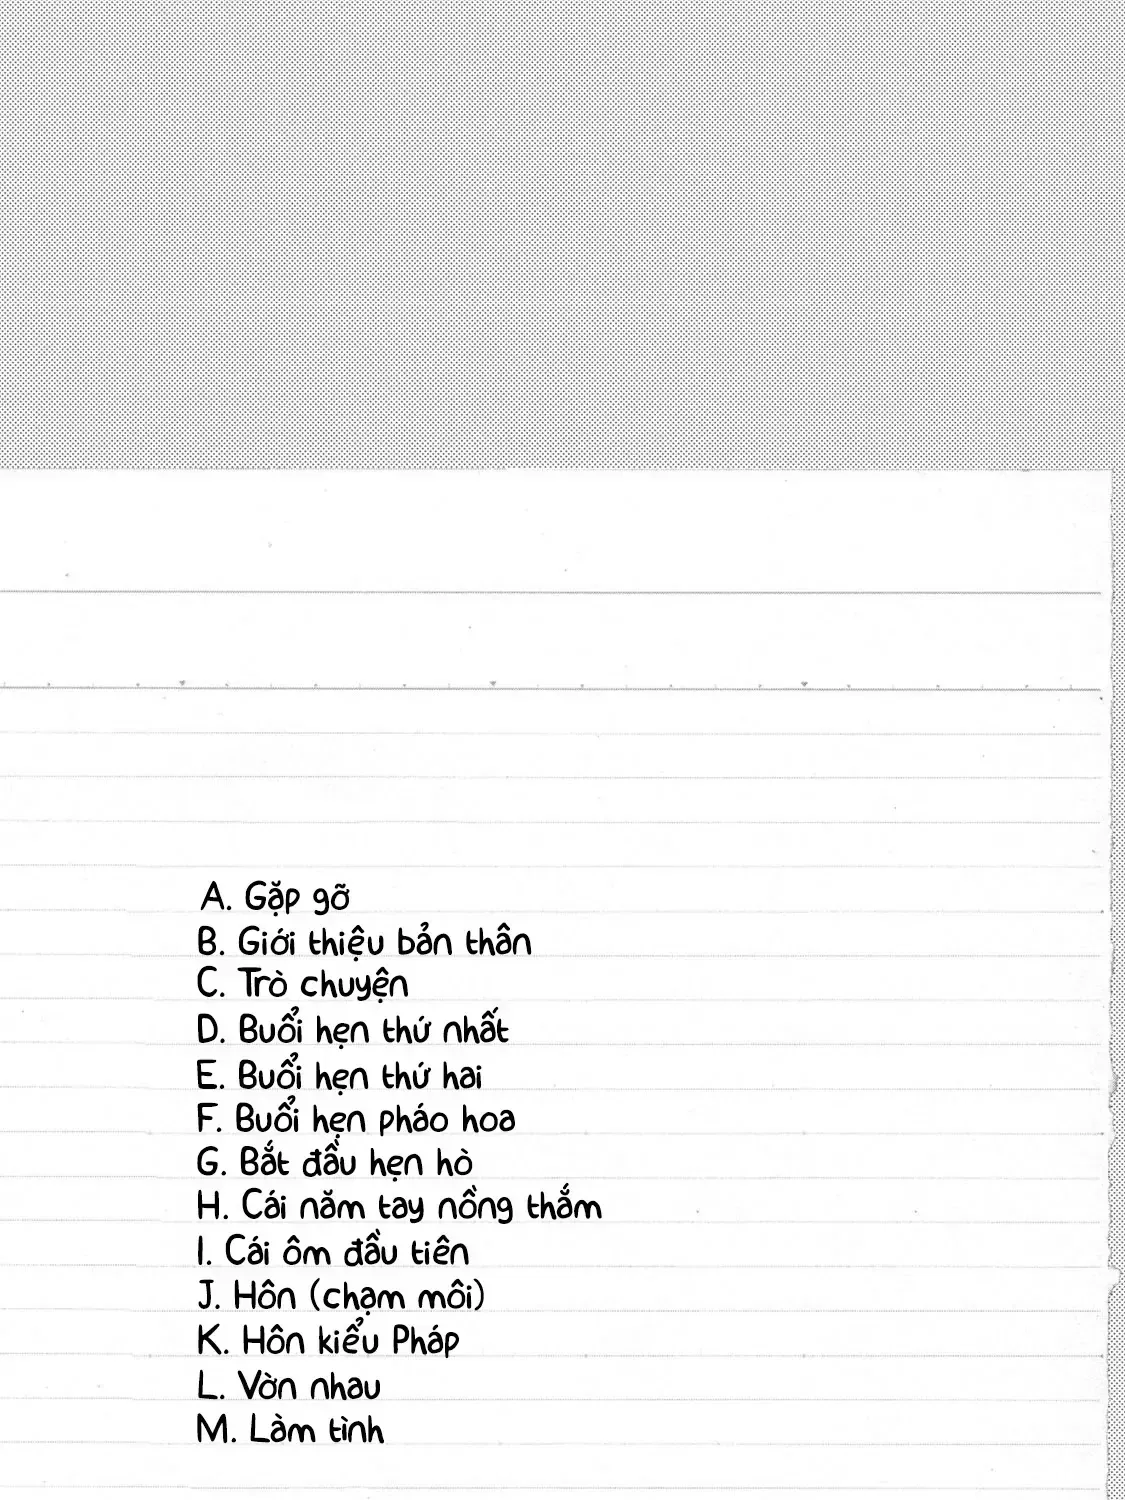 A. Gặp gỡ
B. Giới thiệu bản thân
C. Trò chuyện
D. Buổi hẹn thứ nhất
E. Buổi hẹn thứ hai
F. Buổi hẹn pháo hoa
G. Bắt đầu hẹn hò
H. Cái năm tay nồng thắm
I. Cái ôm đầu tiên
J. Hôn (chạm môi)
K. Hôn kiểu Pháp
L. Vờn nhau
M. Làm tình